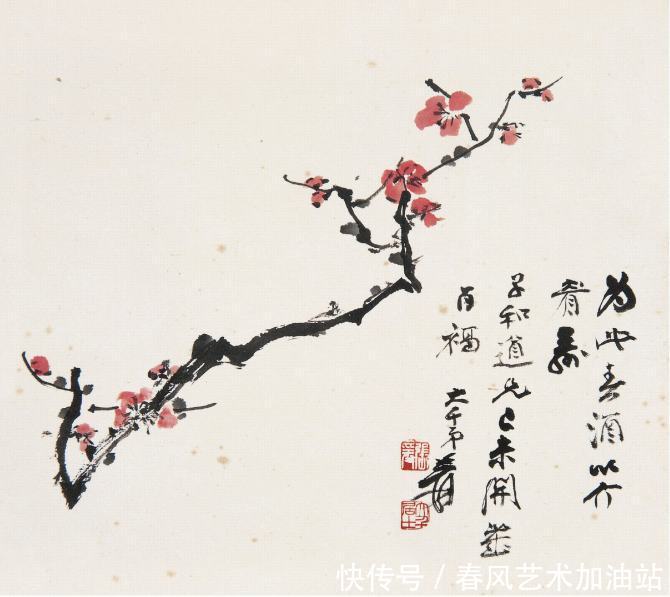 为此春酒以介
眉寿
子和道兄己未開歲
百福
大千弟爰
張爰
大千居士
快传号/春风艺术加油站